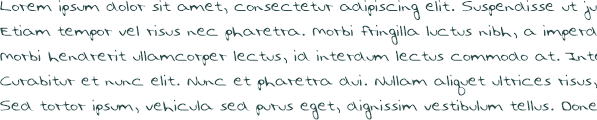 Lorem ipsum dolor sit amet, consectetur adipiscing elit. Suspendisse ut ju
Etiam tempor vel risus nec pharetra. Morbi fringilla luctus nibh, a imperd
Morbi hendrerit ullamcorper lectus, id interdum lectus commodo at. Inte
Curabitur et nunc elit. Nunc et pharetra dui. Nullam aliquet ultrices risus,
Sed tortor ipsum, vehicula sed purus eget, dignissim vestibulum tellus. Done